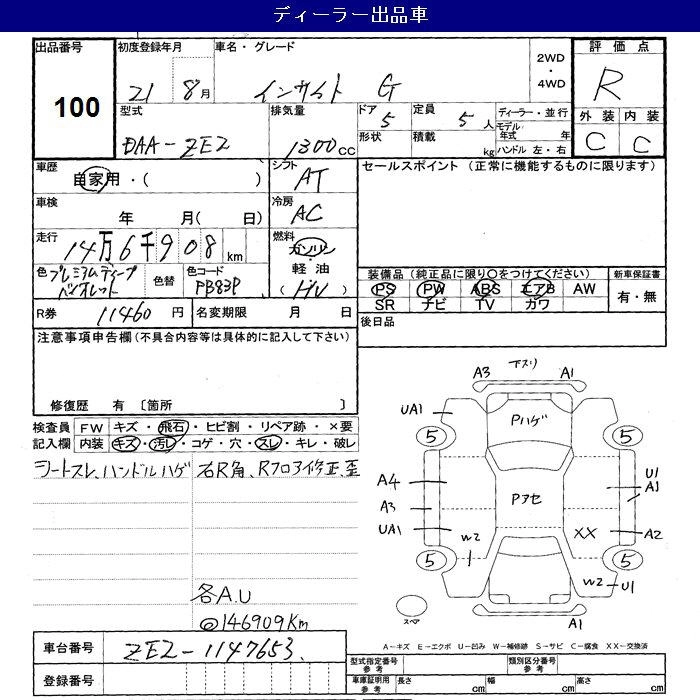 ディーラー出品車
出品番号
100
初度登録年月
21 8月
車名・グレード
インサイト G
2WD
・
4WD
評価点
R
外装 内装
C C
型式
DAA-ZE2
排気量
1300cc
ドア
5
定員
5人
形状
積載
kg
ディーラー・並行
モデル
年式 年
ハンドル 左・右
車歴
自家用・( )
シフト
AT
セールスポイント (正常に機能するものに限ります)
車検
年 月( 日)
冷房
AC
走行
14万6千908km
燃料
ガソリン
・
軽油
(HV)
色 プレミアムディープ
バイオレット
色替
色コード
PB83P
装備品(純正品に限り○をつけてください)
PS PW ABS エアB AW
SR ナビ TV カワ
新車保証書
有・無
R券 11460円
名変期限 月 日
後日品
注意事項申告欄(不具合内容等は具体的に記入して下さい)
修復歴 有 〔箇所 〕
検査員
記入欄
FW キズ・飛石・ヒビ割・リペア跡・×要
内装 キズ・汚レ・コゲ・穴・スレ・キレ・破レ
シートスレ、ハンドルハゲ
右R角、Rフロア修正、歪
各A.U
@146909Km
車台番号
ZE2-1147653
登録番号
A3 下スリ A1
UA1
Pハゲ
5 5
A4
Pアセ
U1
A1
A3
UA1
W2
XX
A2
5 5
W2 U1
スペア
A1
A－キズ E－エクボ U－凹み W－補修跡 S－サビ C－腐食 XX－交換済
型式指定番号
参考
類別区分番号
参考
車庫証明用
参考
長さ cm
幅 cm
高さ cm